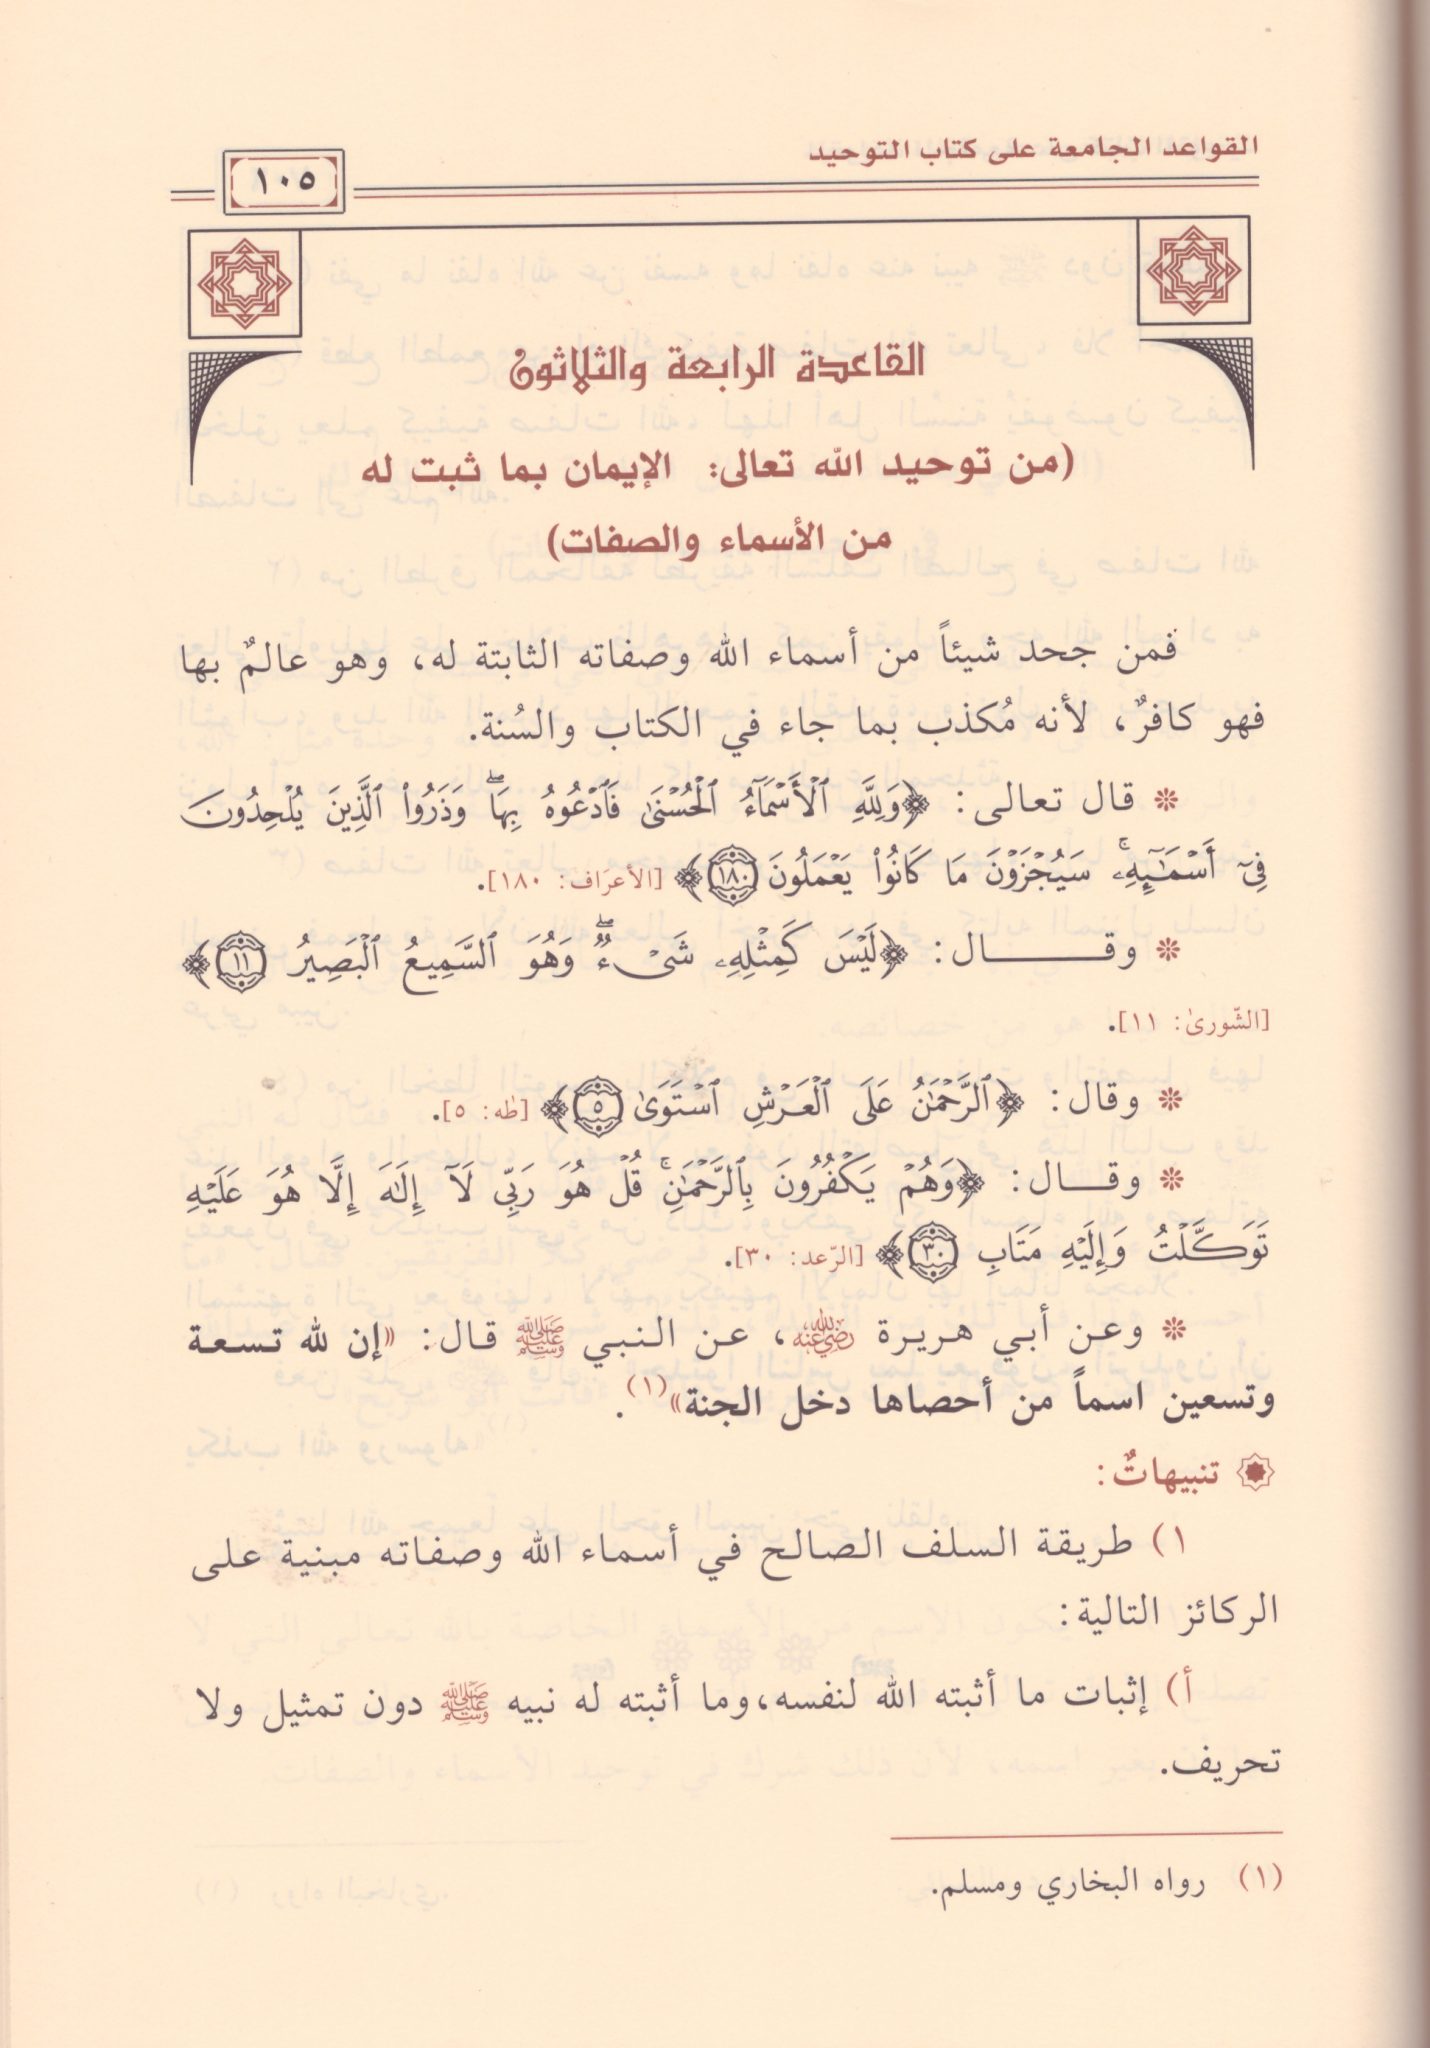 القواعد الجامعة على كتاب التوحيد
١٠٥
القاعدة الرابعة والثلاثون
(من توحيد الله تعالى: الإيمان بما ثبت له
من الأسماء والصفات)
فمن جحد شيئاً من أسماء الله وصفاته الثابتة له، وهو عالمٌ بها
فهو كافرٌ، لأنه مُكذب بما جاء في الكتاب والسُنة.
❊ قال تعالى: ﴿وَلِلَّهِ ٱلْأَسْمَآءُ ٱلْحُسْنَىٰ فَٱدْعُوهُ بِهَا ۖ وَذَرُوا۟ ٱلَّذِينَ يُلْحِدُونَ
فِىٓ أَسْمَـٰٓئِهِۦ ۚ سَيُجْزَوْنَ مَا كَانُوا۟ يَعْمَلُونَ ١٨٠﴾ [الأعرَاف: ١٨٠].
❊ وقـــــال: ﴿لَيْسَ كَمِثْلِهِۦ شَىْءٌ ۖ وَهُوَ ٱلسَّمِيعُ ٱلْبَصِيرُ ١١﴾
[الشّورىٰ: ١١].
❊ وقال: ﴿ٱلرَّحْمَـٰنُ عَلَى ٱلْعَرْشِ ٱسْتَوَىٰ ٥﴾ [طه: ٥].
❊ وقـــال: ﴿وَهُمْ يَكْفُرُونَ بِٱلرَّحْمَـٰنِ ۚ قُلْ هُوَ رَبِّى لَآ إِلَـٰهَ إِلَّا هُوَ عَلَيْهِ
تَوَكَّلْتُ وَإِلَيْهِ مَتَابِ ٣٠﴾ [الرّعد: ٣٠].
❊ وعن أبي هريرة رضي الله عنه، عن النبي ﷺ قال: «إن لله تسعة
وتسعين اسماً من أحصاها دخل الجنة»(١).
تنبيهاتٌ:
١) طريقة السلف الصالح في أسماء الله وصفاته مبنية على
الركائز التالية:
أ) إثبات ما أثبته الله لنفسه،وما أثبته له نبيه ﷺ دون تمثيل ولا
تحريف.
(١) رواه البخاري ومسلم.